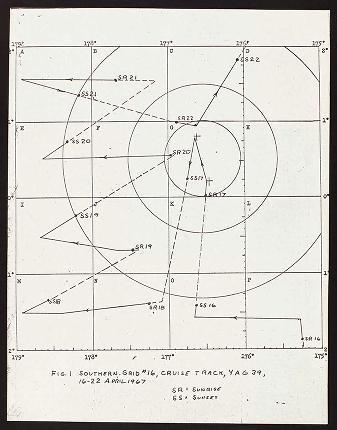 179° 178° 177° 176° 175°
2° A B C D 2°
SS22
SR21
SS21
SR22
1° E F G H 1°
SS20
SR20
SS17
SR17
0° I J K L 0°
SS19
SR19
1° M N O P 1°
SS18
SR18
SS16
SR16
2° 179° 178° 177° 176° 175° 2°
FIG. 1 SOUTHERN GRID #16, CRUISE TRACK, YAG 39,
16-22 APRIL 1967
SR = SUNRISE
SS = SUNSET